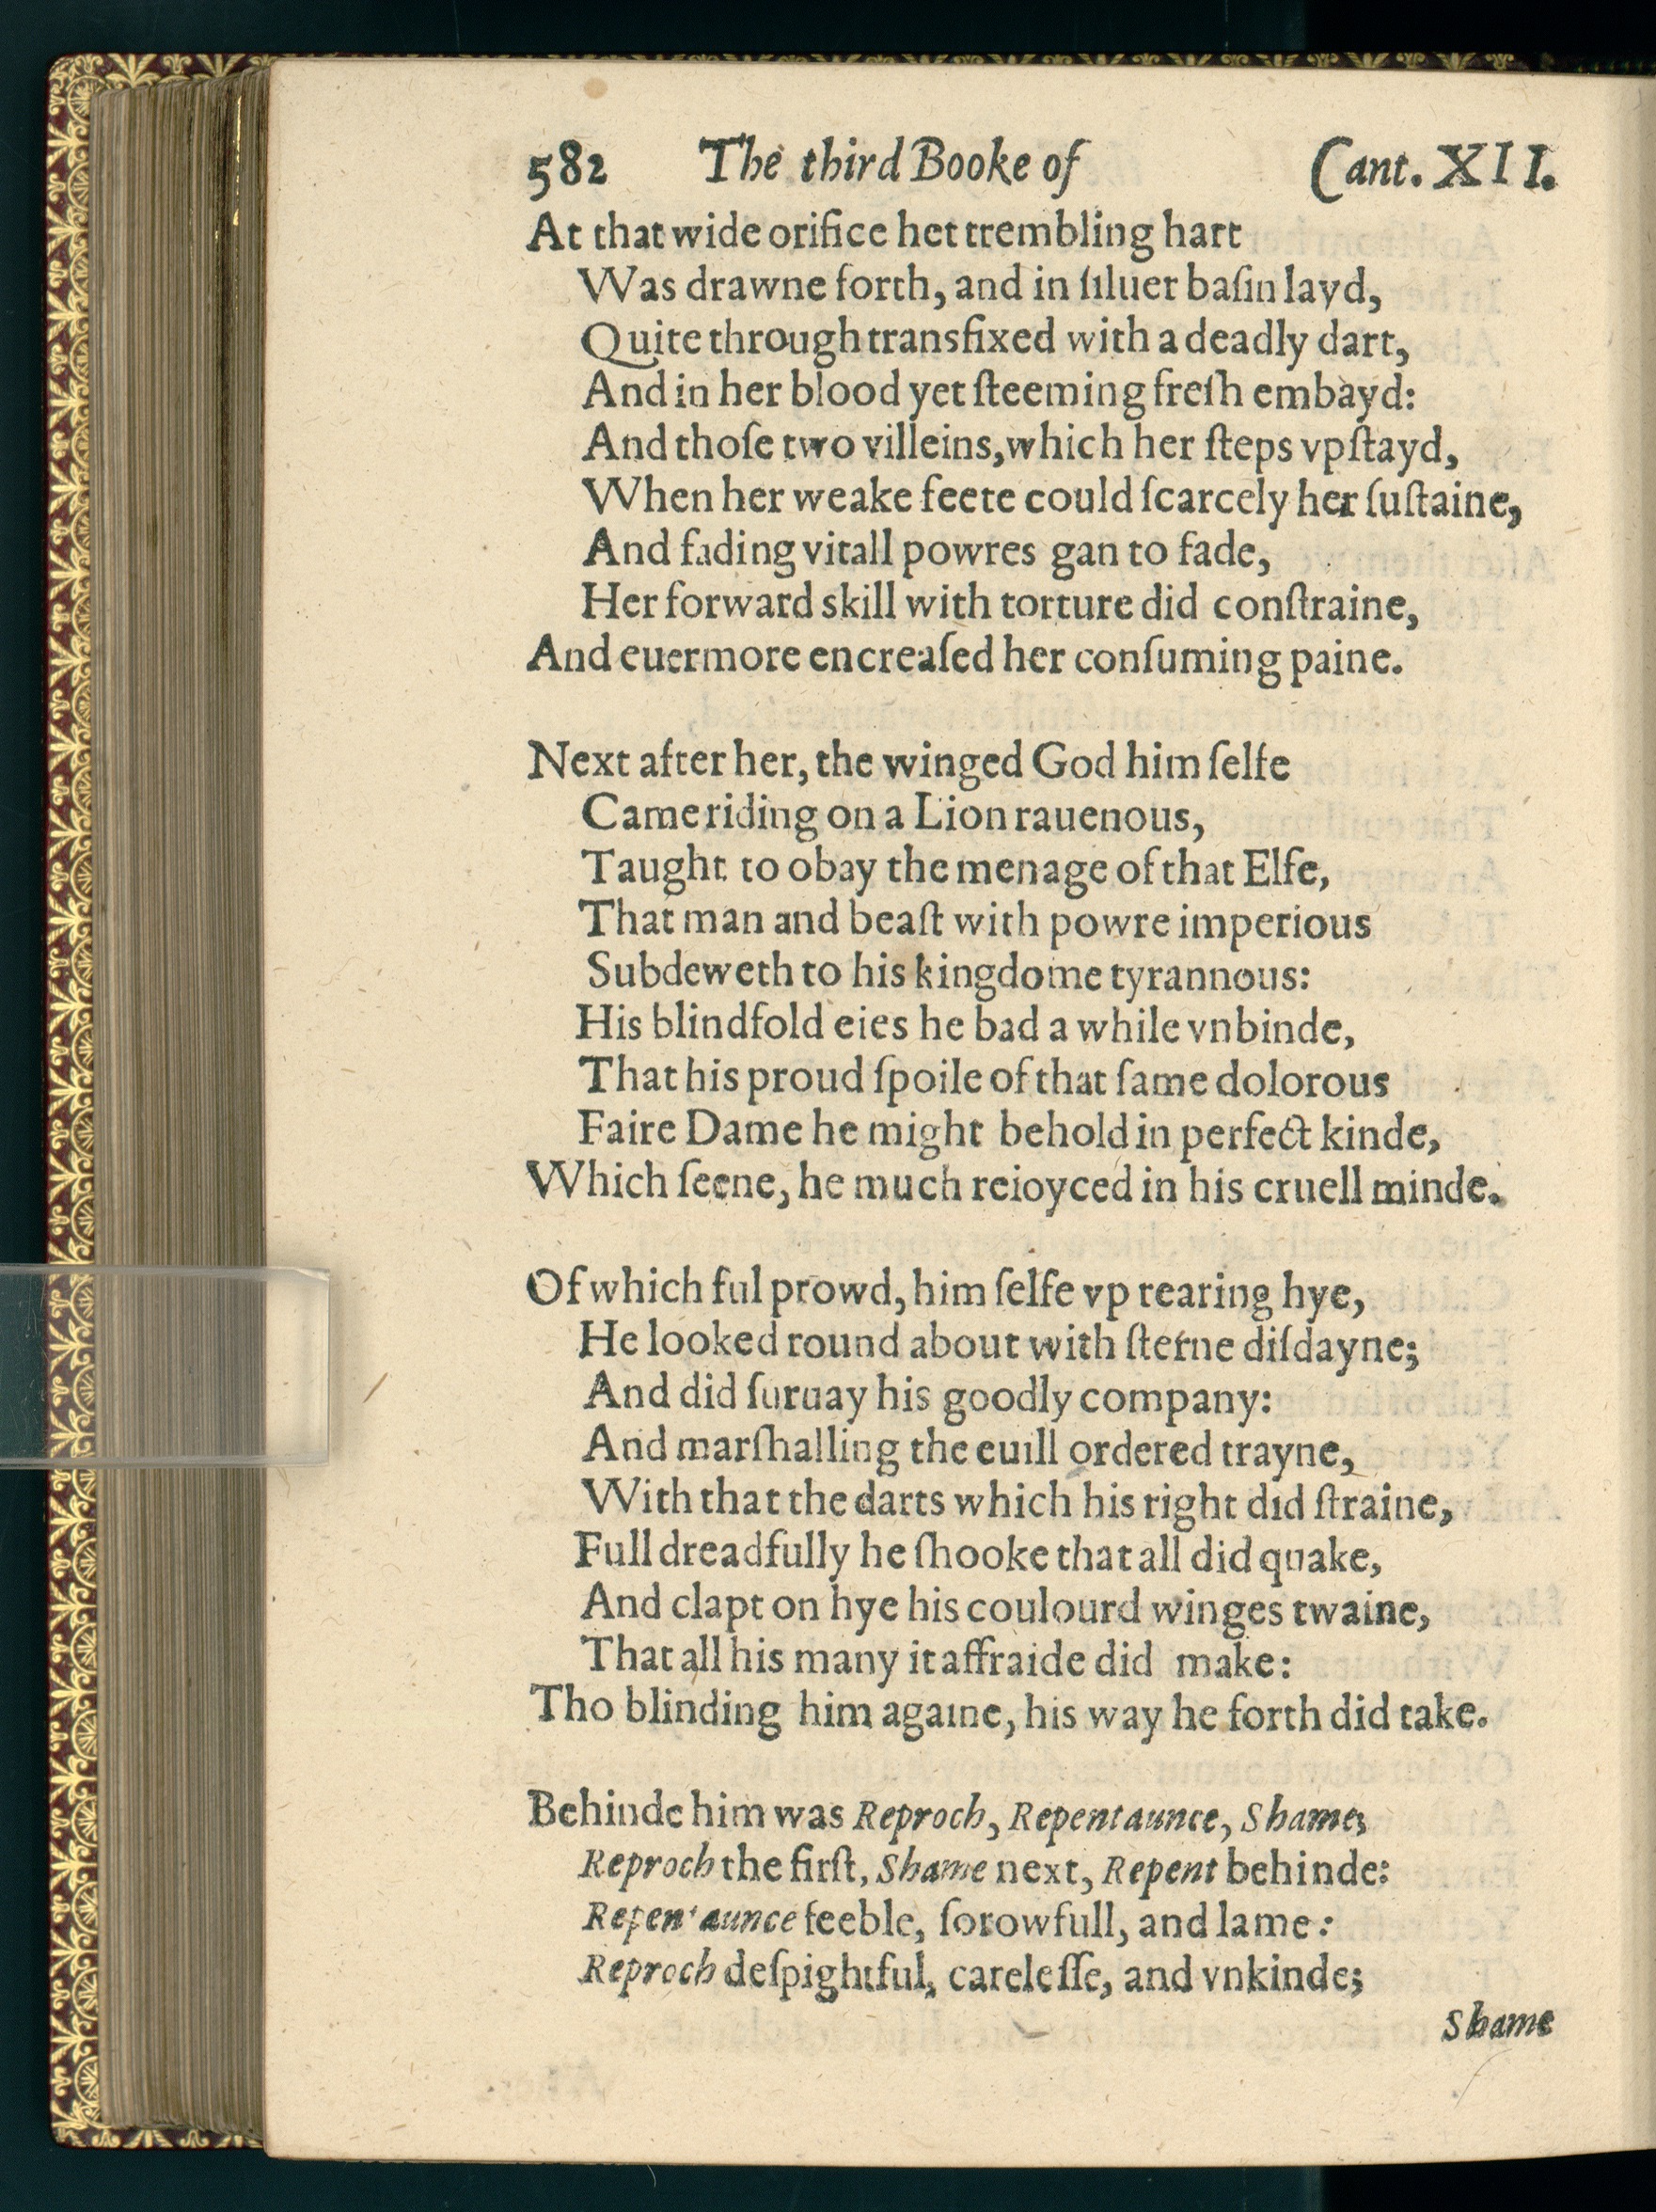 582 The third Booke of Cant. XII.
At that wide orifice het trembling hart
Was drawne forth, and in ſiluer baſin layd,
Quite through transfixed with a deadly dart,
And in her blood yet ſteeming freſh embayd:
And thoſe two villeins, which her ſteps vpſtayd,
When her weake feete could ſcarcely her ſuſtaine,
And fading vitall powres gan to fade,
Her forward skill with torture did conſtraine,
And euermore encreaſed her conſuming paine.
Next after her, the winged God him ſelfe
Came riding on a Lion rauenous,
Taught to obay the menage of that Elfe,
That man and beaſt with powre imperious
Subdeweth to his kingdome tyrannous:
His blindfold eies he bad a while vnbinde,
That his proud ſpoile of that ſame dolorous
Faire Dame he might behold in perfect kinde,
Which ſeene, he much reioyced in his cruell minde.
Of which ful prowd, him ſelfe vp rearing hye,
He looked round about with ſterne diſdayne;
And did ſuruay his goodly company:
And marſhalling the euill ordered trayne,
With that the darts which his right did ſtraine,
Full dreadfully he ſhooke that all did quake,
And clapt on hye his coulourd winges twaine,
That all his many it affraide did make:
Tho blinding him againe, his way he forth did take.
Behinde him was Reproch, Repentaunce, Shame;
Reproch the firſt, Shame next, Repent behinde:
Repentaunce feeble, ſorowfull, and lame:
Reproch deſpightful, careleſſe, and vnkinde;
Shame